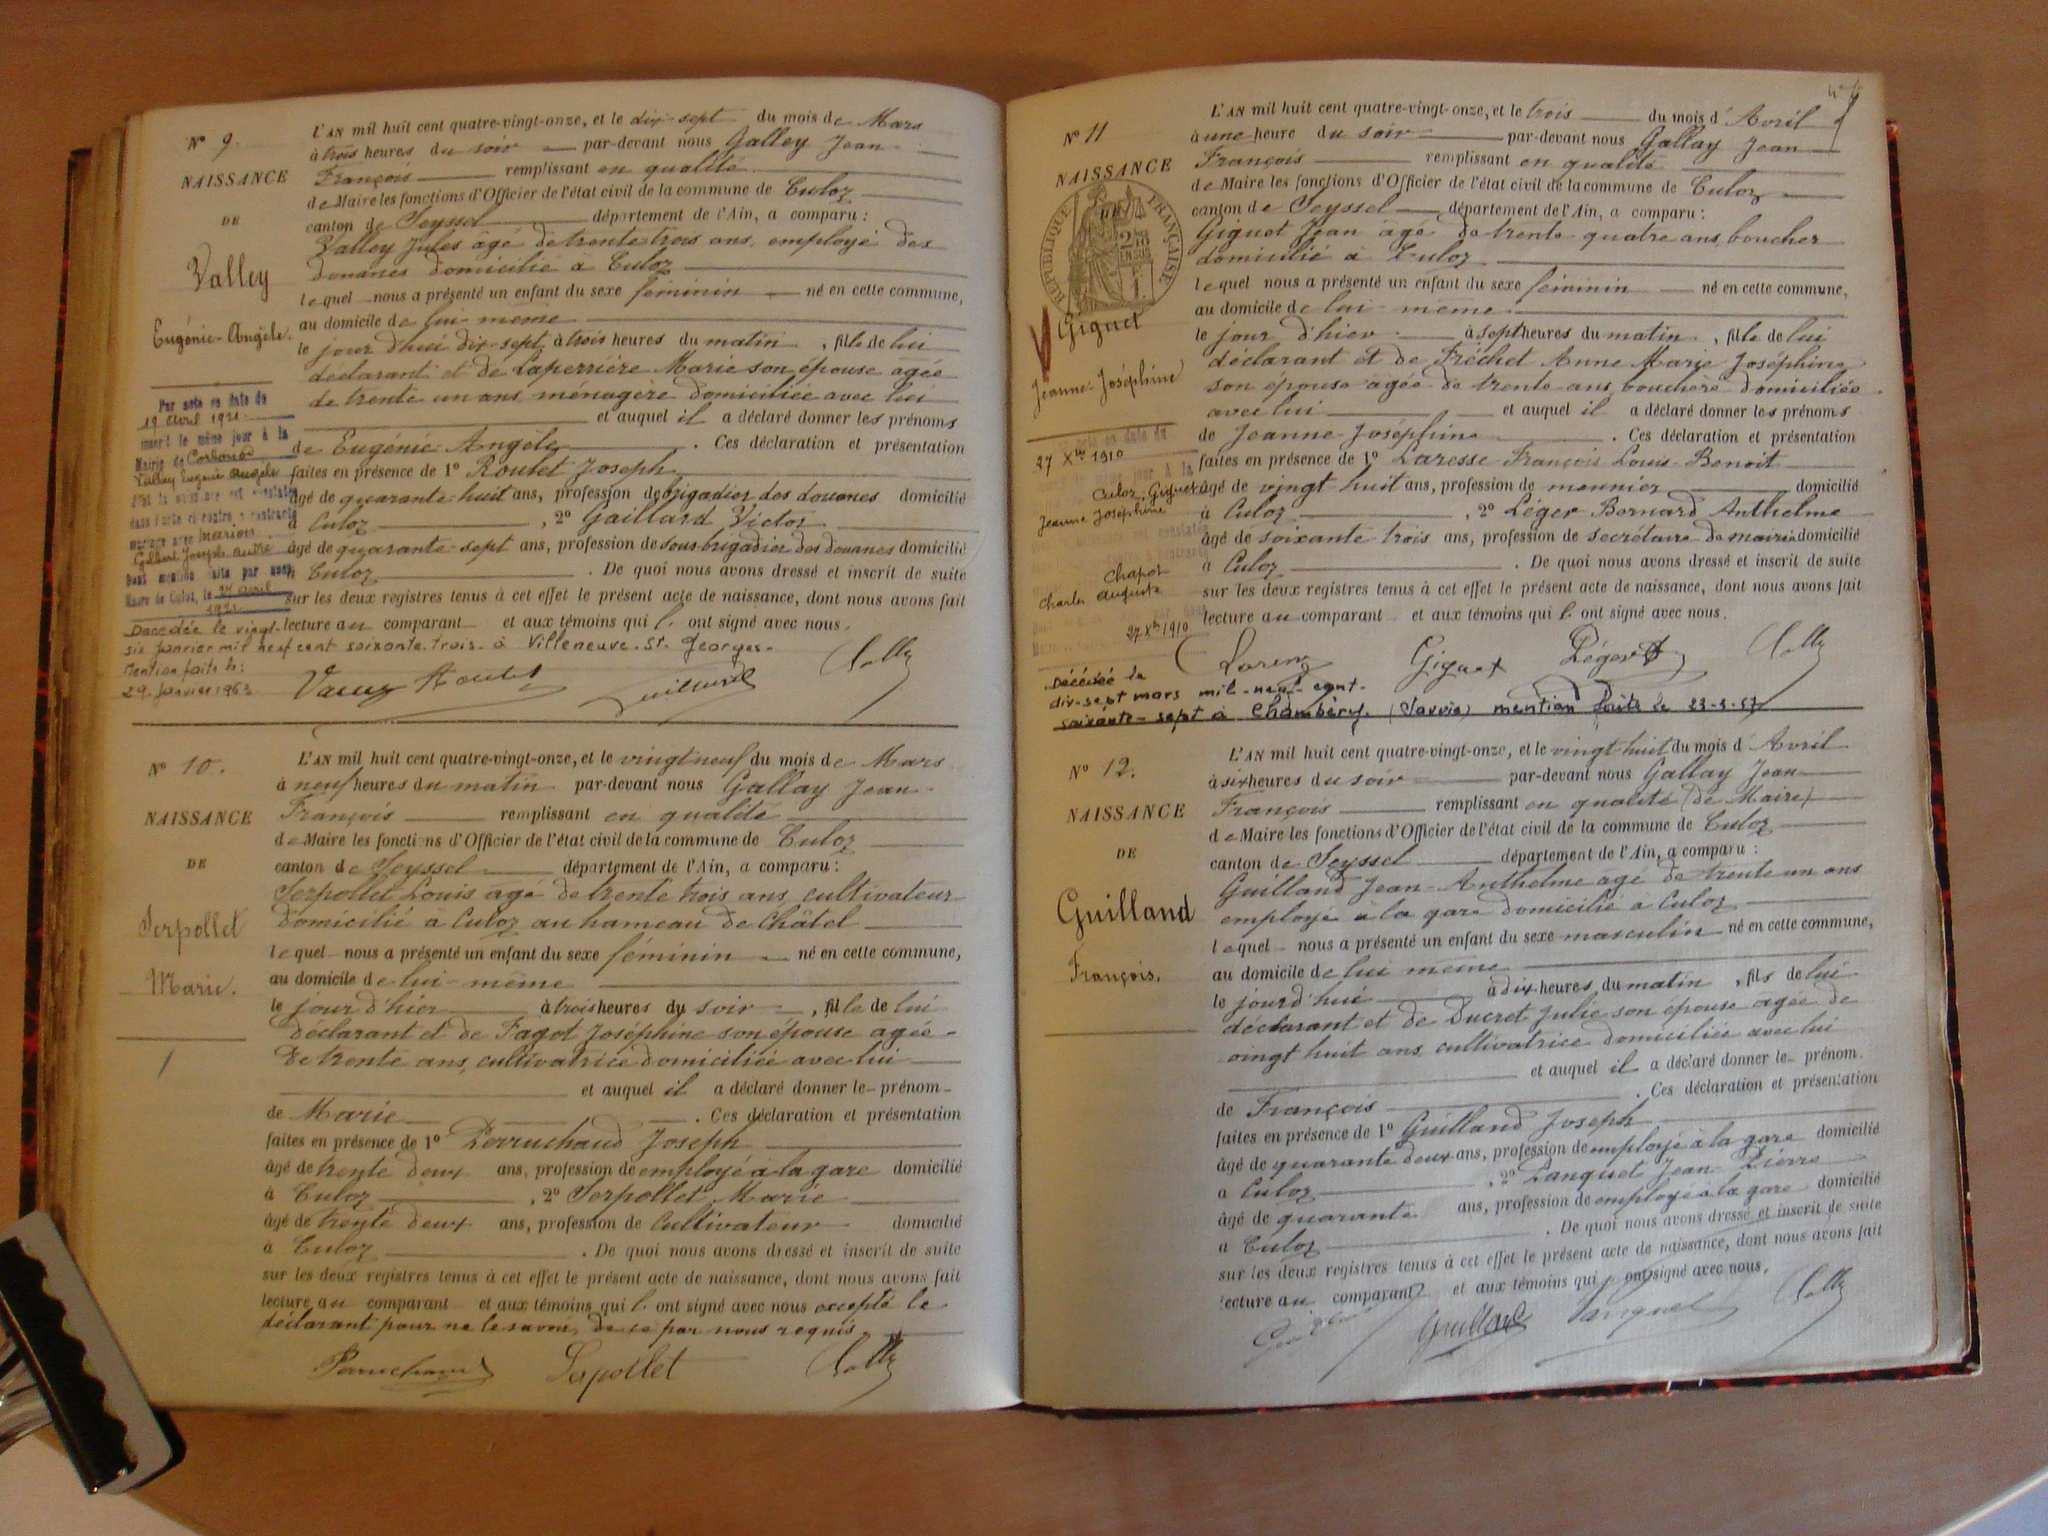 N° 9.
NAISSANCE
DE
Valley
Eugénie-Angèle.
Par acte en date du
19 Avril 1921
inscrit le même jour à la
Mairie de
Valley Eugénie Angèle
dont la naissance est constatée
dans l'acte ci-contre a contracté
mariage avec
Dont mention faite par nous,
Maire de Culoz, le
1921
L'AN mil huit cent quatre-vingt-onze, et le dix-sept du mois de Mars
à trois heures du soir par-devant nous Gallay Jean
François remplissant en qualité
de Maire les fonctions d'Officier de l'état civil de la commune de Culoz
canton de Seyssel département de l'Ain, a comparu :
Valley Jules âgé de trente trois ans, employé des
douanes domicilié à Culoz
lequel nous a présenté un enfant du sexe féminin né en cette commune,
au domicile de lui-même
le jour d'hui dix-sept, à trois heures du matin, fille de lui
déclarant et de Laperrière Marie son épouse agée
de trente un ans ménagère domiciliée avec lui
et auquel il a déclaré donner les prénoms
de Eugénie-Angèle. Ces déclaration et présentation
faites en présence de 1° Routet Joseph
âgé de quarante-huit ans, profession de brigadier des douanes domicilié
à Culoz, 2° Gaillard Victor
âgé de quarante-sept ans, profession de sous-brigadier des douanes domicilié
à Culoz. De quoi nous avons dressé et inscrit de suite
sur les deux registres tenus à cet effet le présent acte de naissance, dont nous avons fait
lecture au comparant et aux témoins qui l. ont signé avec nous.
Décédée le vingt-
six janvier mil neuf cent soixante-trois à Villeneuve-St-Georges.
Mention faite le:
29 janvier 1963
N° 10.
NAISSANCE
DE
Serpollet
Marie.
L'AN mil huit cent quatre-vingt-onze, et le vingt neuf du mois de Mars
à neuf heures du matin par-devant nous Gallay Jean
François remplissant en qualité
de Maire les fonctions d'Officier de l'état civil de la commune de Culoz
canton de Seyssel département de l'Ain, a comparu :
Serpollet Louis agé de trente trois ans, cultivateur
domicilié à Culoz au hameau de Châtel
lequel nous a présenté un enfant du sexe féminin né en cette commune,
au domicile de lui-même
le jour d'hier à trois heures du soir, fille de lui
déclarant et de Fagot Joséphine son épouse agée
de trente ans, cultivatrice domiciliée avec lui
et auquel il a déclaré donner le prénom
de Marie. Ces déclaration et présentation
faites en présence de 1° Perruchaud Joseph
âgé de trente deux ans, profession de employé à la gare domicilié
à Culoz, 2° Serpollet Marie
âgé de trente deux ans, profession de cultivateur domicilié
à Culoz. De quoi nous avons dressé et inscrit de suite
sur les deux registres tenus à cet effet le présent acte de naissance, dont nous avons fait
lecture au comparant et aux témoins qui l. ont signé avec nous excepté le
déclarant pour ne le savoir, de ce par nous requis.
Perruchaud Serpollet
N° 11
NAISSANCE
DE
RÉPUBLIQUE FRANÇAISE
Giguet
Jeanne-Joséphine
27 Xbre 1910
Culoz, Giguet
Jeanne Joséphine
Chapot
Charles Auguste
27 Xbre 1910
L'AN mil huit cent quatre-vingt-onze, et le trois du mois d'Avril
à une heure du soir par-devant nous Gallay Jean
François remplissant en qualité
de Maire les fonctions d'Officier de l'état civil de la commune de Culoz
canton de Seyssel département de l'Ain, a comparu :
Giguet Jean âgé de trente quatre ans, boucher
domicilié à Culoz
lequel nous a présenté un enfant du sexe féminin né en cette commune,
au domicile de lui-même
le jour d'hier à sept heures du matin, fille de lui
déclarant et de Fréchet Anne Marie Joséphine
son épouse agée de trente ans, bouchère domiciliée
avec lui et auquel il a déclaré donner les prénoms
de Jeanne-Joséphine. Ces déclaration et présentation
faites en présence de 1° Laresse François Louis Benoit
âgé de vingt huit ans, profession de meunier domicilié
à Culoz, 2° Léger Bernard Anthelme
âgé de soixante-trois ans, profession de secrétaire de mairie domicilié
à Culoz. De quoi nous avons dressé et inscrit de suite
sur les deux registres tenus à cet effet le présent acte de naissance, dont nous avons fait
lecture au comparant et aux témoins qui l. ont signé avec nous.
Giguet
Décédée le
dix-sept mars mil-neuf-cent-
soixante-sept à Chambéry (Savoie) mention faite le 23-3-67
N° 12.
NAISSANCE
DE
Guilland
François.
L'AN mil huit cent quatre-vingt-onze, et le vingt huit du mois d'Avril
à six heures du soir par-devant nous Gallay Jean
François remplissant en qualité (de Maire)
de Maire les fonctions d'Officier de l'état civil de la commune de Culoz
canton de Seyssel département de l'Ain, a comparu :
Guilland Jean-Anthelme agé de trente un ans
employé à la gare domicilié à Culoz
lequel nous a présenté un enfant du sexe masculin né en cette commune,
au domicile de lui même
le jourd'hui à dix heures du matin, fils de lui
déclarant et de Ducret Julie son épouse agée de
vingt huit ans, cultivatrice domiciliée avec lui
et auquel il a déclaré donner le prénom
de François. Ces déclaration et présentation
faites en présence de 1° Guilland Joseph
âgé de quarante deux ans, profession de employé à la gare domicilié
à Culoz, 2° Lanquet Jean Pierre
âgé de quarante ans, profession de employé à la gare domicilié
à Culoz. De quoi nous avons dressé et inscrit de suite
sur les deux registres tenus à cet effet le présent acte de naissance, dont nous avons fait
lecture au comparant et aux témoins qui l. ont signé avec nous.
Guilland